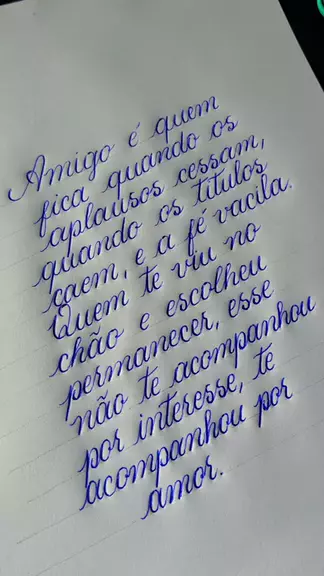 Amigo é quem
fica quando os
aplausos cessam,
quando os títulos
caem, e a fé vacila.
Quem te viu no
chão e escolheu
permanecer, esse
não te acompanhou
por interesse, te
acompanhou por
amor.